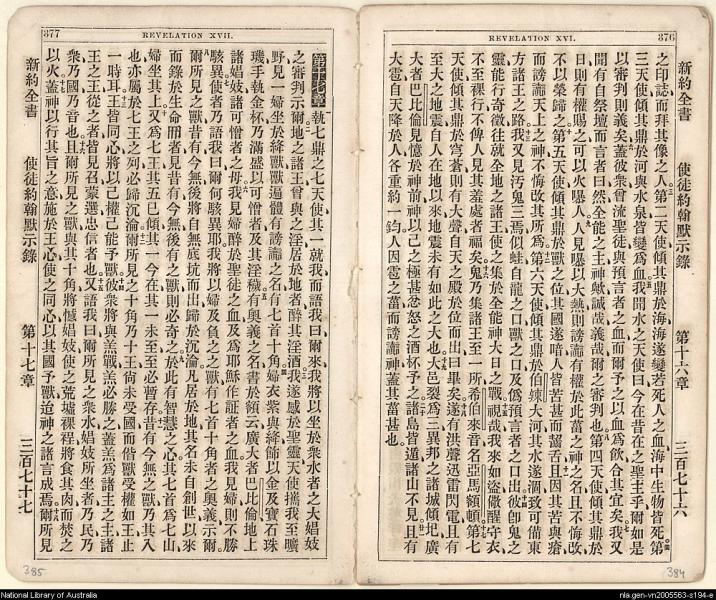 REVELATION XVI.
376
新約全書 使徒約翰默示錄 第十六章 三百七十六
之印誌而拜其像之人第二天使傾其鼎於海海遂變若死人之血海中生物皆死第
三天使傾其鼎於河與水泉皆變爲血我聞水之天使曰今在昔在之聖主乎爾如是
以審判則義矣蓋彼衆曾流聖徒與預言者之血而爾予之以血爲飲合其宜矣我又
聞有自祭壇而言者曰然全能之主神歟誠哉義哉爾之審判也第四天使傾其鼎於
日則有權賜之可以火爆人人見爆以大熱則謗讟有權於此菑之神之名且不悔改
不以榮歸之第五天使傾其鼎於獸之位其國遂暗人皆苦甚而齧舌且因其苦與瘡
而謗讟天上之神不悔改其所爲第六天使傾其鼎於伯辣大河其水遂涸致可備東
方諸王之路我又見汚鬼三焉似蛙自龍之口獸之口及僞預言者之口出彼卽鬼之
靈能行奇徵往就全地之諸王使之集於全能神大日之戰視哉我來如盜儆醒守衣
不至裸行不俾人見其羞處者福矣鬼乃集諸王至一所希伯來音名亞馬額頓第七
天使傾其鼎於穹蒼則有大聲自天之殿於位而出曰畢矣遂有洪聲迅雷閃電且有
至大之地震自人在地以來地震未有如此之大也大邑裂爲三異邦之諸城傾圮廣
大者巴比倫見憶於神前神以己之極甚忿怒之酒杯予之諸島皆遁諸山不見且有
大雹自天降於人各重約一鈞人因雹之菑而謗讟神蓋其菑甚也
384
377
REVELATION XVII.
第十七章 執七鼎之七天使其一就我而語我曰爾來我將以坐於衆水者之大娼妓
之審判示爾地之諸王曾與之淫居於地者醉其淫酒我遂感於聖靈天使攜我至曠
野見一婦坐於絳獸獸遍體有謗讟之名有七首十角婦衣紫與絳飾以金及寶石珠
璣手執金杯乃滿盛以可憎者及其淫穢有奧義之名書於額云廣大者巴比倫地上
諸娼妓諸可憎者之母我見婦醉於聖徒之血及爲耶穌作証者之血我見婦則不勝
駭異使者乃語我曰爾何駭異耶我將以婦及負之之獸有七首十角者之奧義示爾
爾所見之獸昔有今無後將自無底坑而出歸於沉淪凡居於地其名未自創世以來
而錄於生命冊者見昔有今無後有之獸則必奇之於此有智慧之心其七首爲七山
婦坐其上又爲七王其五已傾其一今在其一未至至必暫存昔有今無之獸乃其八
也亦屬於七王之列必歸沉淪爾所見之十角乃十王尙未受國而偕獸受權如王止
一時耳王皆同心將以己權己能予獸彼衆將與羔戰羔必勝之蓋羔爲諸主之主諸
王之王從之者皆見召蒙選忠信者也又語我曰爾所見之衆水娼妓所坐者乃民乃
衆乃國乃音也且爾所見之獸與其十角將憾娼妓使之荒墟裸裎將食其肉而焚之
以火蓋神以行其旨之意施於王心使之同心以其國予獸迨神之諸言成焉爾所見
新約全書 使徒約翰默示錄 第十七章 三百七十七
385
National Library of Australia
nla.gen-vn2005563-s194-e